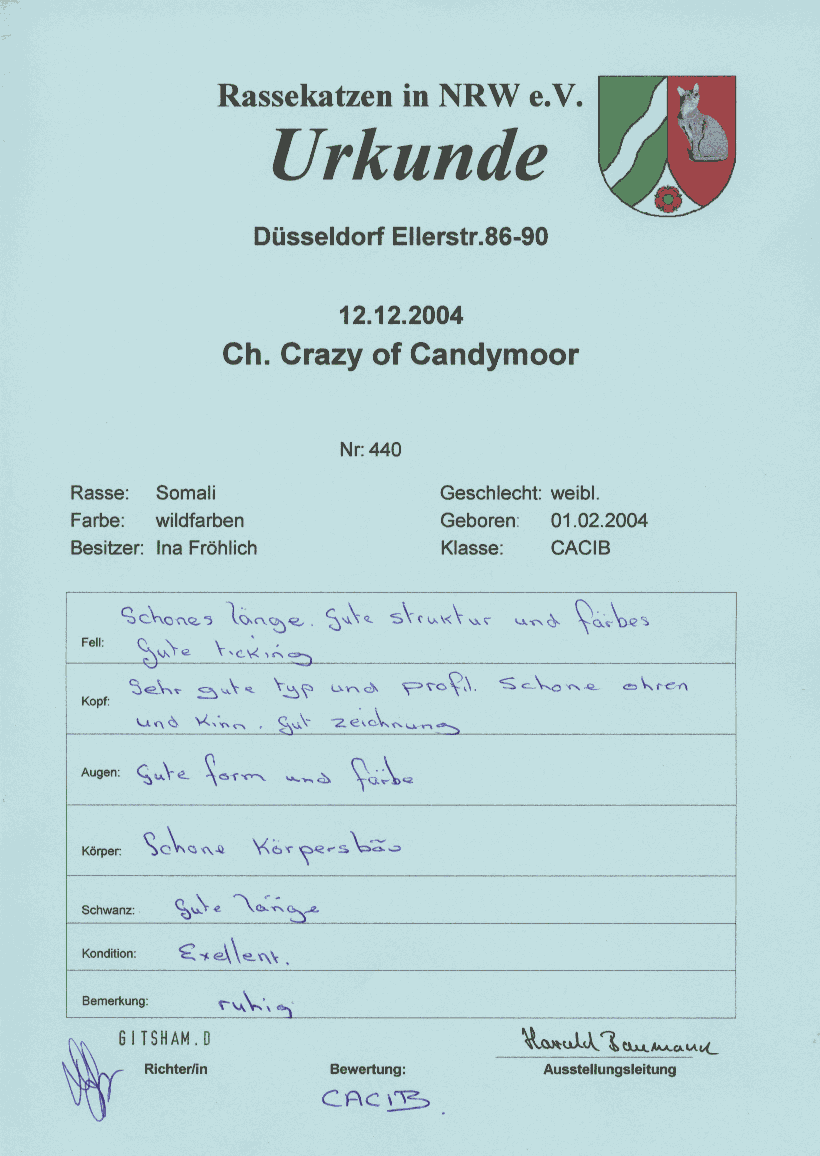 Rassekatzen in NRW e.V.
Urkunde
Düsseldorf Ellerstr.86-90
12.12.2004
Ch. Crazy of Candymoor
Nr: 440
Rasse: Somali
Geschlecht: weibl.
Farbe: wildfarben
Geboren: 01.02.2004
Besitzer: Ina Fröhlich
Klasse: CACIB
Fell: Schones länge. Gute struktur und färbes
Gute ticking
Kopf: Sehr gute typ und profil. Schone ohren
und Kinn. Gut zeichnung
Augen: Gute form und färbe
Körper: Schone Körpersbäu
Schwanz: Gute länge
Kondition: Exellent.
Bemerkung: ruhig
GITSHAM.D
Harald Baumann
Richter/in
Bewertung:
Ausstellungsleitung
CACIB.